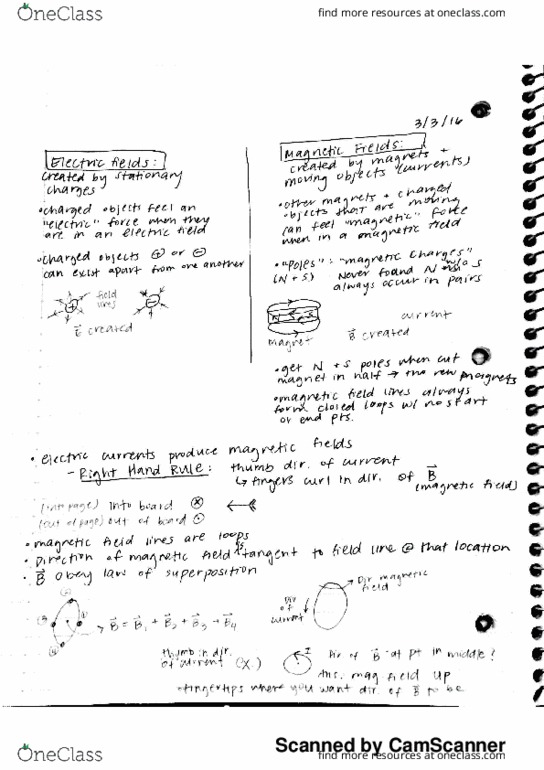 OneClass
find more resources at oneclass.com
3/3/16
Electric fields:
created by stationary
charges
• charged objects feel an
"electric" force when they
are in an electric field
• charged objects ⊕ or ⊖
can exist apart from one another
field
lines
E created
Magnetic Fields:
created by magnets +
moving objects (currents)
• other magnets + charged
objects that are moving
can feel "magnetic" force
when in a magnetic field
• "Poles": "magnetic charges"
(N + S) Never found N w/o S
always occur in pairs
N S
magnet
current
B created
• get N + S poles when cut
magnet in half → two new magnets
• magnetic field lines always
form closed loops w/ no start
or end pts.
• electric currents produce magnetic fields
- Right Hand Rule: thumb dir. of current
↳ fingers curl in dir. of B
(magnetic field)
(into page) into board ⊗ ←
(out of page) out of board ⊙
• magnetic field lines are loops
• Direction of magnetic field is tangent to field line @ that location
• B obey law of superposition
→ B = B1 + B2 + B3 + B4
Dir
of
current
Dir magnetic
field
thumb in dir.
of current
(x.)
I
dir of B at pt in middle?
Ans. mag field up
• fingertips where you want dir. of B to be
Scanned by CamScanner
OneClass
find more resources at oneclass.com